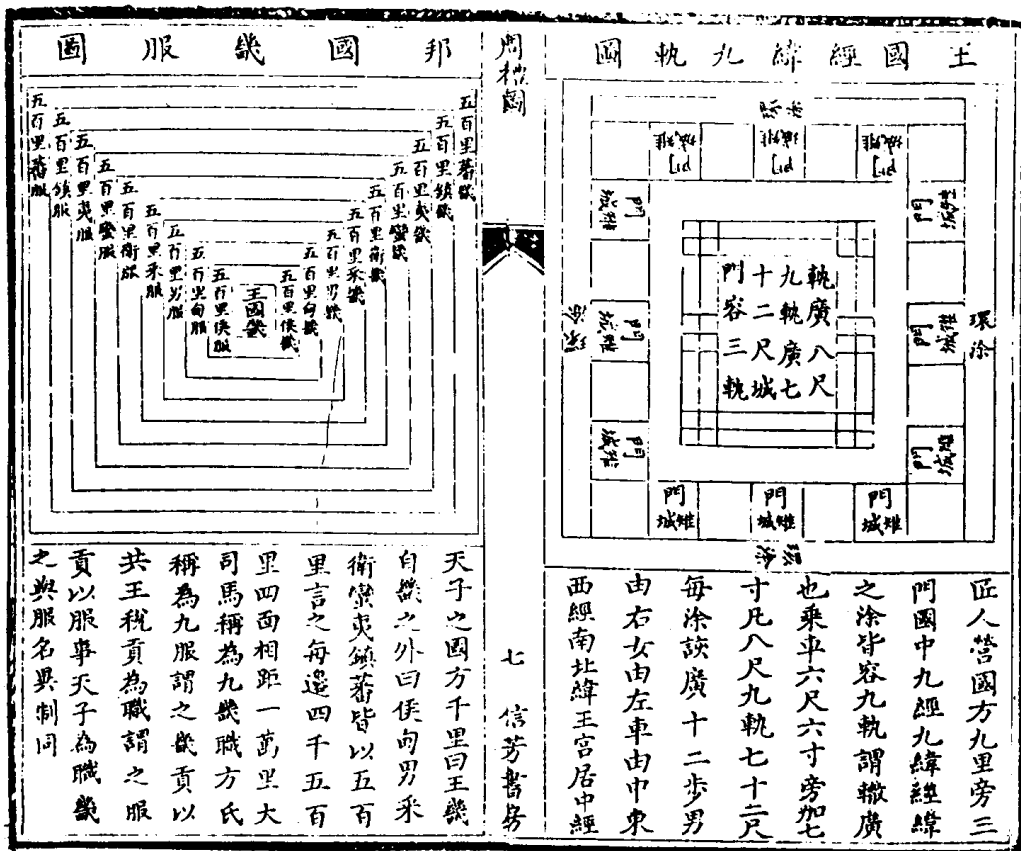 王國經緯九軌圖
環涂
環涂
環涂
環涂
門
城雉
門
城雉
門
城雉
門
城雉
門
城雉
門
城雉
門
城雉
門
城雉
門
城雉
門
城雉
門
城雉
門
城雉
軌廣八尺
九軌廣七
十二尺城
門容三軌
匠人營國方九里旁三
門國中九經九緯經緯
之涂皆容九軌謂轍廣
也乘車六尺六寸旁加七
寸凡八尺九軌七十二尺
每涂該廣十二步男
由右女由左車由中東
西經南北緯王宮居中經
周禮圖
七
信芳書房
邦國畿服圖
五百里蕃畿
五百里鎮畿
五百里夷畿
五百里蠻畿
五百里衛畿
五百里采畿
五百里男畿
五百里甸畿
五百里侯畿
王國畿
五百里侯服
五百里甸服
五百里男服
五百里采服
五百里衛服
五百里蠻服
五百里夷服
五百里鎮服
五百里蕃服
天子之國方千里曰王畿
自畿之外曰侯甸男采
衛蠻夷鎮蕃皆以五百
里言之每邉四千五百
里四面相距一萬里大
司馬稱為九畿職方氏
稱為九服謂之畿貢以
共王稅貢為職謂之服
貢以服事天子為職畿
之與服名異制同